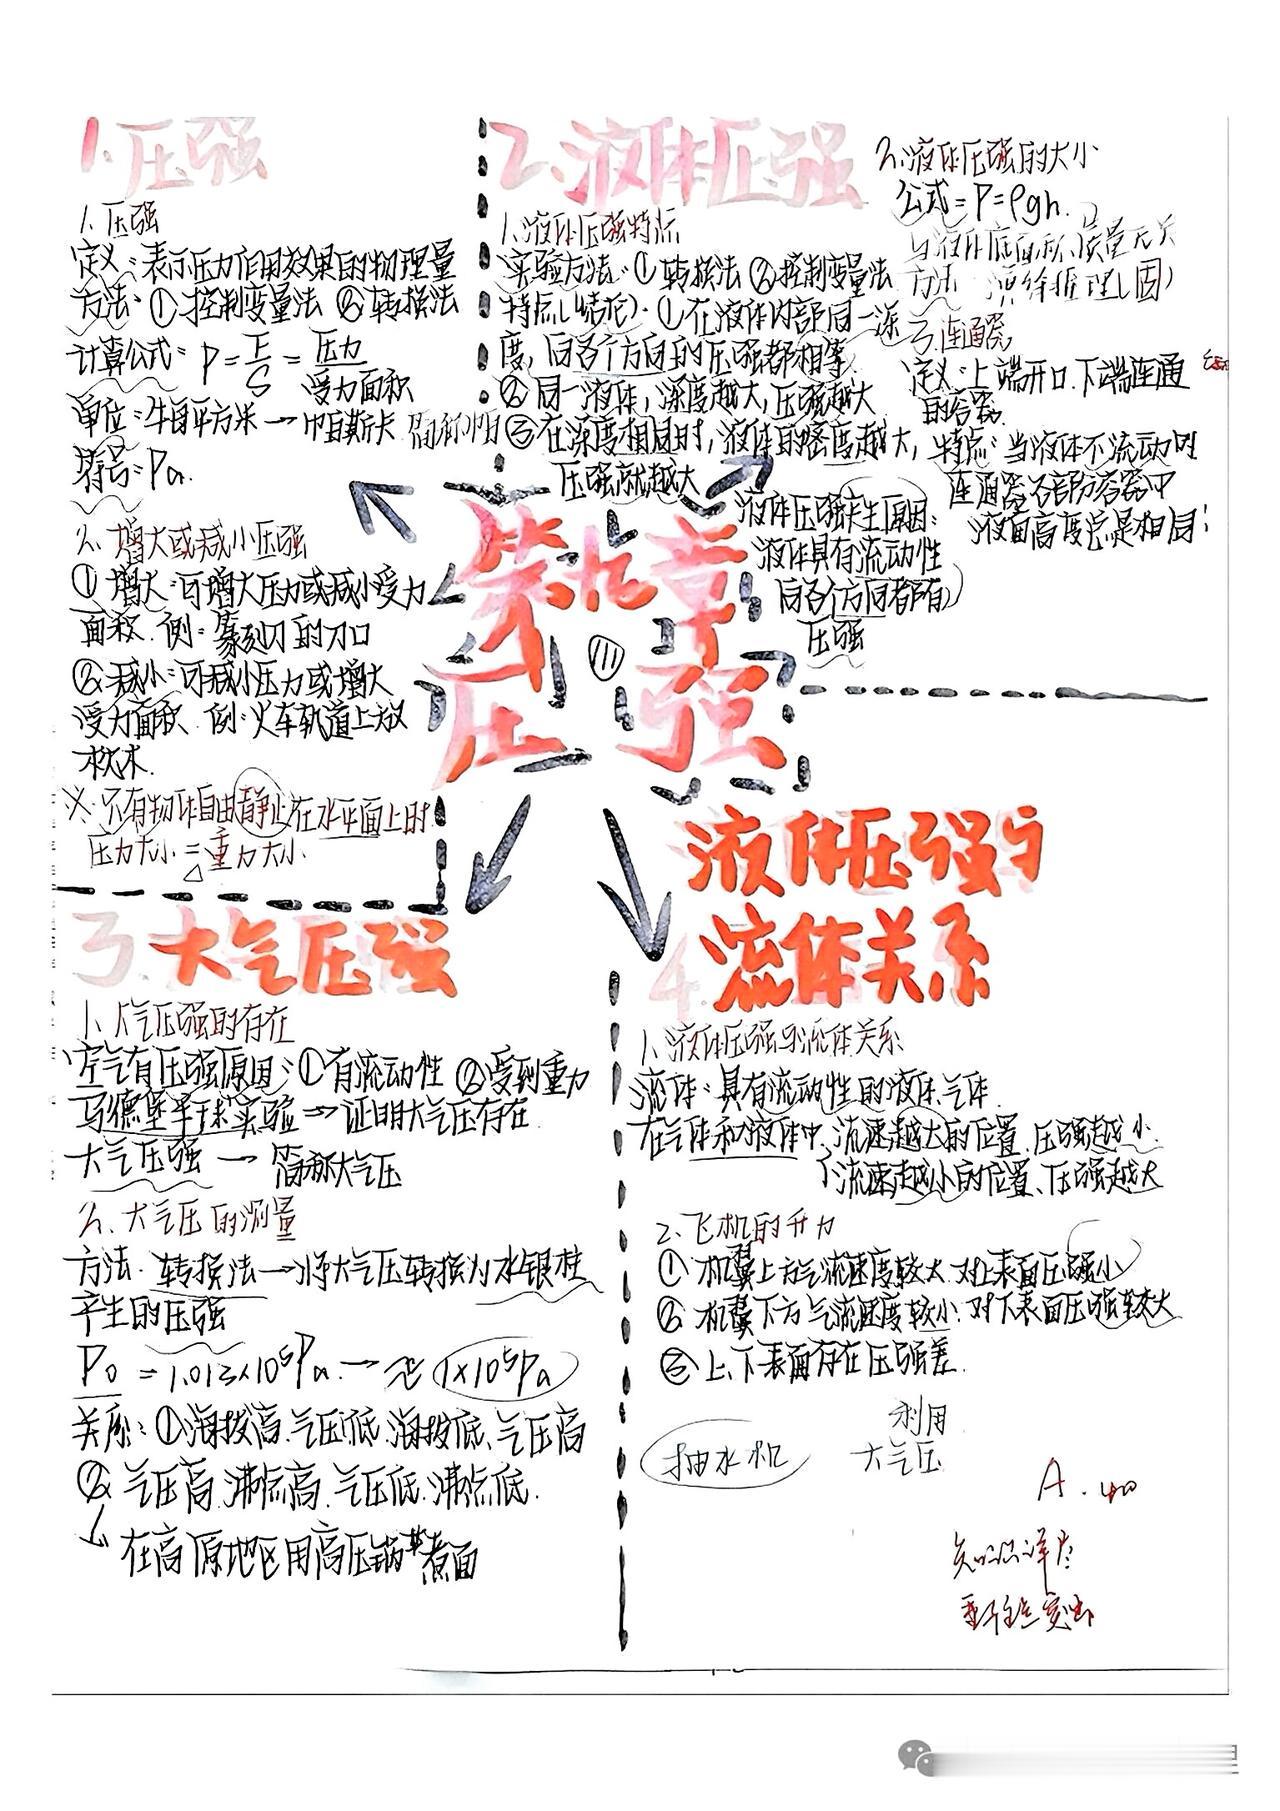 第九章
压强
1.压强
1.压强
定义:表示压力作用效果的物理量
方法:①控制变量法 ②转换法
计算公式:P=F/S=压力/受力面积
单位:牛每平方米→帕斯卡 简称帕
符号:Pa.
2.增大或减小压强
①增大:可增大压力或减小受力
面积.例:篆刻刀的刀口
②减小:可减小压力或增大
受力面积.例:火车轨道上放
枕木.
※.只有物体自由静止在水平面上时
压力大小=重力大小.
2.液体压强
1.液体压强特点
实验方法:①转换法 ②控制变量法
特点(结论):①在液体内部同一深
度,向各个方向的压强都相等
②同一液体,深度越大,压强越大
③在深度相同时,液体的密度越大,
压强就越大
液体压强产生原因:
液体具有流动性
向各个方向都有
压强
2.液体压强的大小
公式=P=ρgh.
与液体底面积、质量无关
方法:演绎推理(固)
3.连通器
定义:上端开口.下端连通
的容器
特点:当液体不流动时
连通器各部分容器中
液面高度总是相同
3.大气压强
1.大气压强的存在
空气有压强原因:①有流动性 ②受到重力
马德堡半球实验→证明大气压存在
大气压强→简称大气压
2.大气压的测量
方法.转换法→将大气压转换为水银柱
产生的压强
P0=1.013×10⁵Pa.→≈1×10⁵Pa
关系:①海拔高.气压低.海拔低、气压高
②气压高.沸点高.气压低.沸点低.
↓在高原地区用高压锅煮面
4.液体压强与
流体关系
1.液体压强与流体关系
流体:具有流动性的液体、气体.
在气体和液体中.流速越大的位置、压强越小
流速越小的位置、压强越大
2.飞机的升力
①机翼上方气流速度较大.对上表面压强小
②机翼下方气流速度较小.对下表面压强较大
③上、下表面存在压强差.
抽水机
利用
大气压
A.
重难点突出